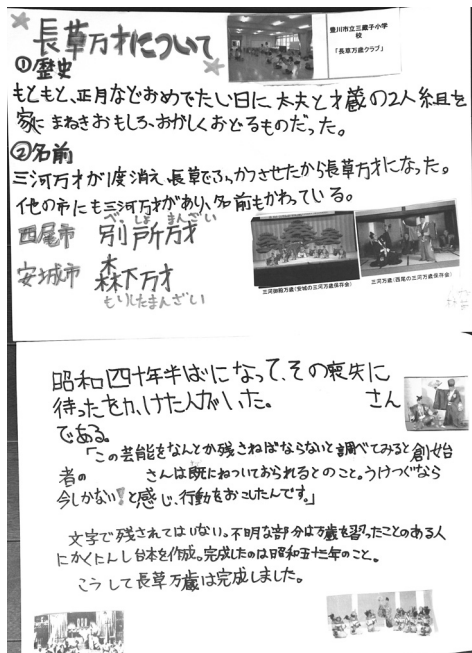 長草万才について
豊川市立三蔵子小学校
「長草万歳クラブ」
①歴史
もともと、正月などおめでたい日に太夫と才蔵の2人組を
家にまねきおもしろ、おかしくおどるものだった。
②名前
三河万才が1度消え長草でふっかつさせたから長草万才になった。
他の市にも三河万才があり、名前もかわっている。
べっしょまんざい
西尾市 別所万才
安城市 森下万才
もりしたまんざい
三河御殿万歳(安城の三河万歳保存会)
三河万歳(西尾の三河万歳保存会)
昭和四十年半ばになって、その喪失に
待ったをかけた人がいた。 さん
である。
「この芸能をなんとか残さねばならないと調べてみると創始
者の さんは既にねついておられるとのこと。うけつぐなら
今しかない!と感じ、行動をおこしたんです。」
文字で残されてはいない。不明な部分は万歳を習ったことのある人
にかくにんし台本を作成。完成したのは昭和五十二年のこと。
こうして長草万歳は完成しました。